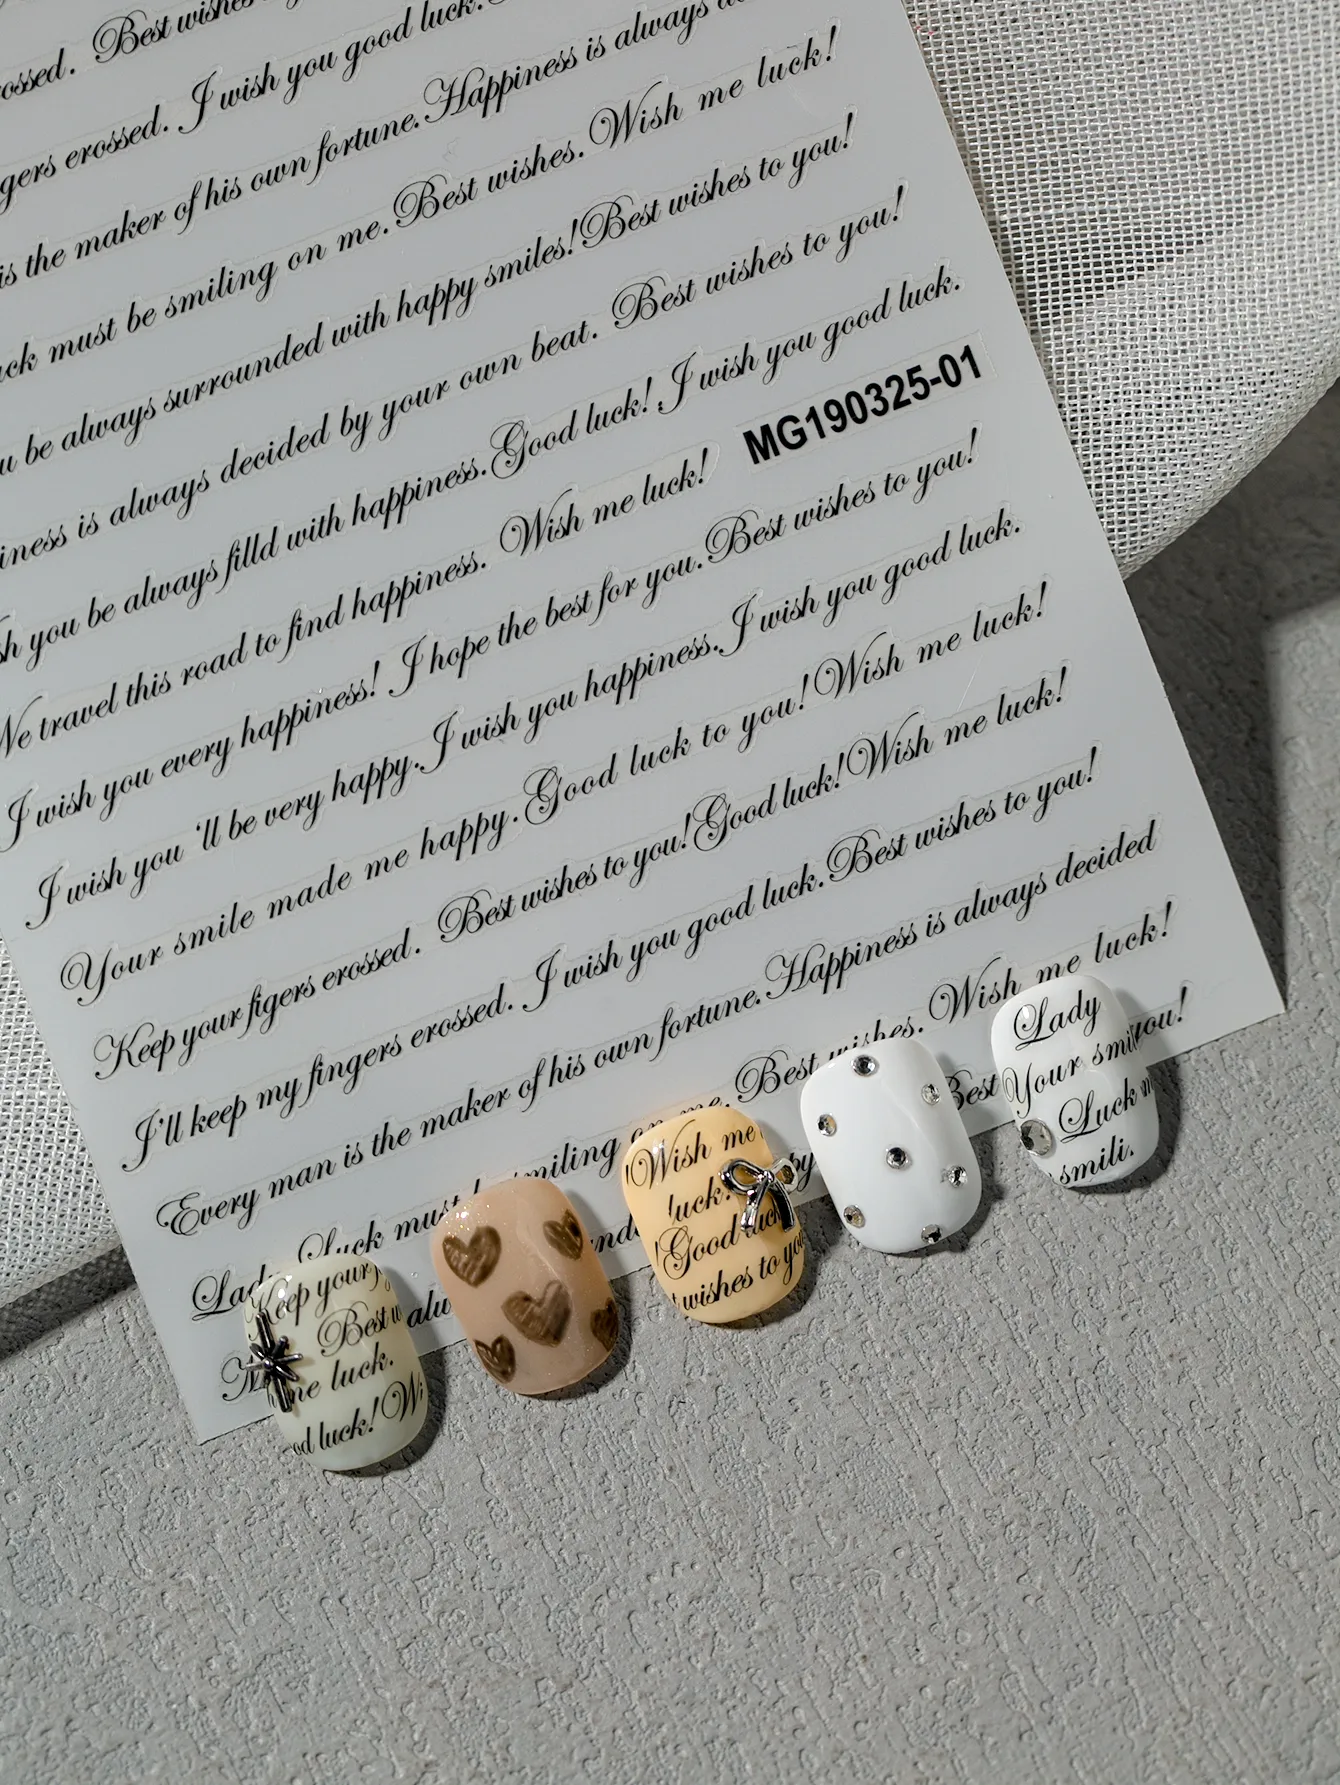 crossed. Best wishes
fingers erossed. I wish you good luck.
is the maker of his own fortune. Happiness is always
must be smiling on me. Best wishes. Wish me luck!
be always surrounded with happy smiles! Best wishes to you!
is always decided by your own beat. Best wishes to you!
you be always filld with happiness. Good luck! I wish you good luck.
We travel this road to find happiness. Wish me luck!
MG190325-01
I wish you every happiness! I hope the best for you. Best wishes to you!
I wish you 'll be very happy. I wish you happiness. I wish you good luck.
Your smile made me happy. Good luck to you! Wish me luck!
Keep your figers erossed. Best wishes to you! Good luck! Wish me luck!
I'll keep my fingers erossed. I wish you good luck. Best wishes to you!
Every man is the maker of his own fortune. Happiness is always decided
Lady Luck must be smiling on me. Best wishes. Wish me luck!
Best you!
Keep your
Best
me luck.
luck! Wi
Wish me
luck.
!Good luck
t wishes to you
Lady
Your smil
Luck m
smili.